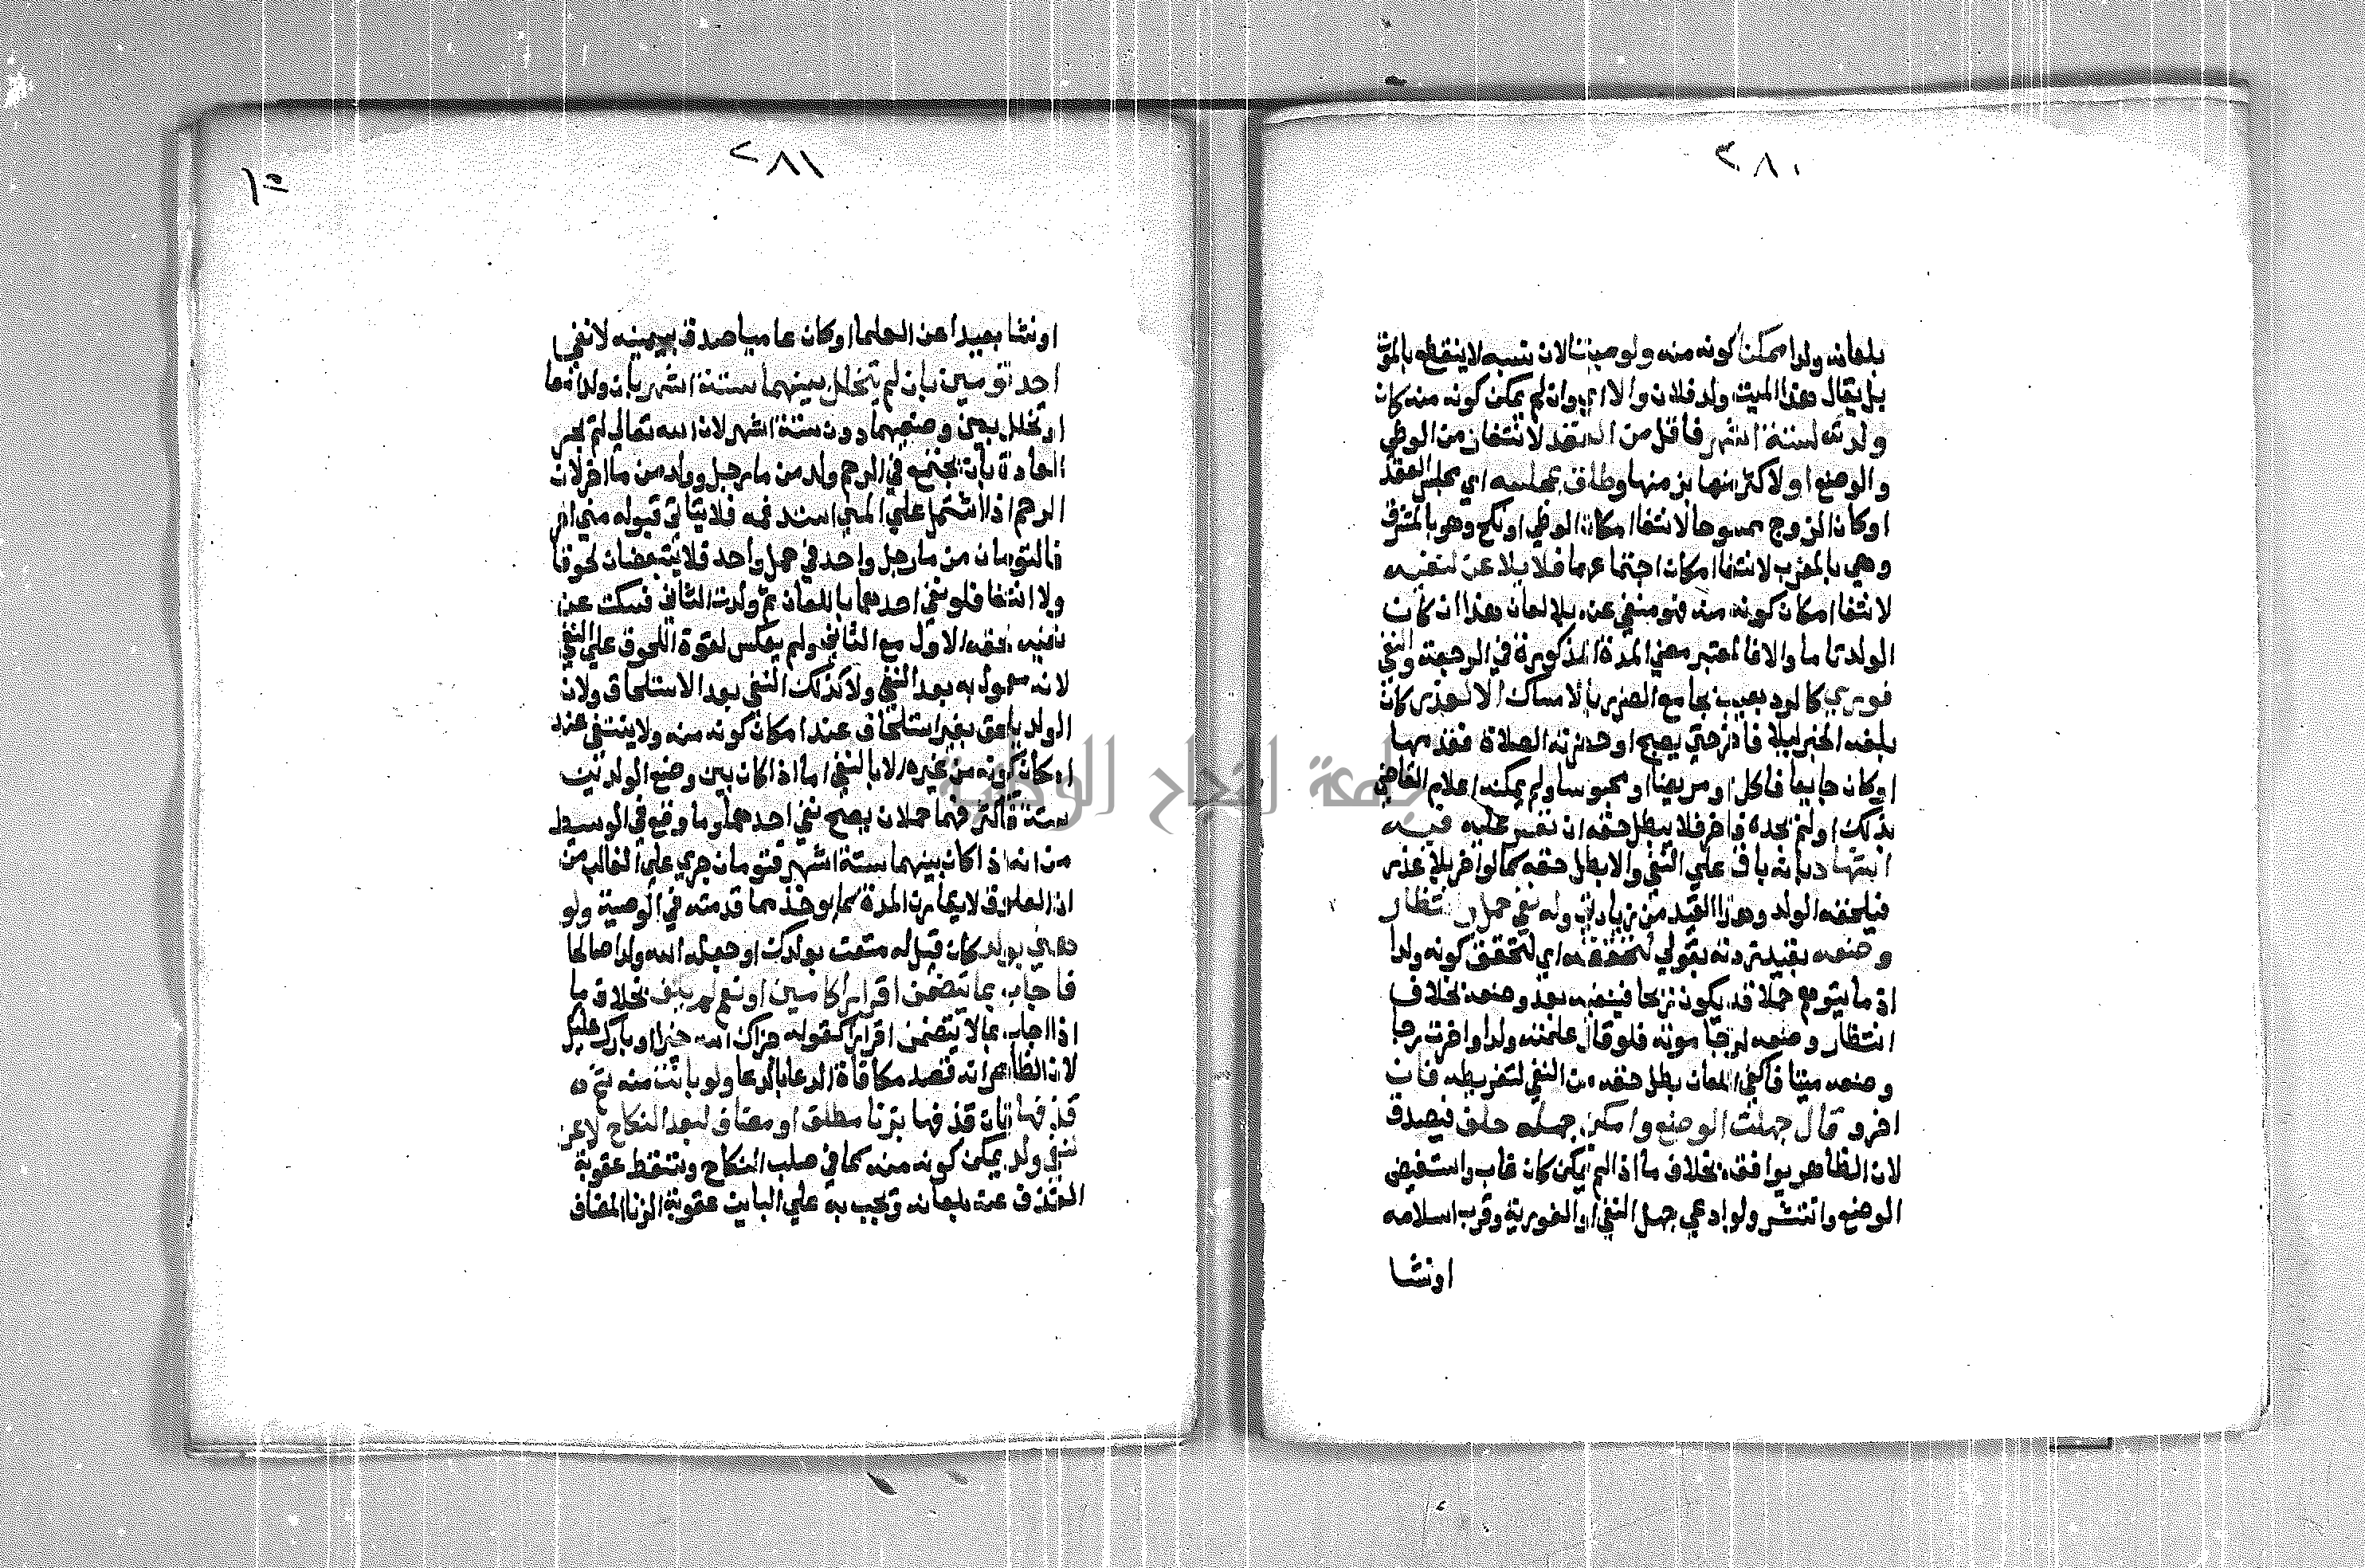 ٢٨٠
بلعانه ولدا ممكن كونه منه ولو ميتا لان نسبه لا ينقطع بالموت
بل يقال هذا الميت ولد فلان والا اي وان لم يمكن كونه منه كان
ولدته لستة اشهر فأقل من العقد لانتفان من الوطي
والوضع او لاكثر منها بزمنها وطلق بمجلسه اي مجلس العقد
او كان الزوج ممسوحا لانتفا امكان الوطي او نكح وهو بالمشرق
وهي بالمغرب لانتفا امكان اجتماعهما فلا يلاعن لنفيه
لانتفا امكان كونه منه فهو منفي عنه بلا لعان هذا ان كان
الولد تاما والا فالمعتبر مضي المدة المذكورة في الرجعة والنفي
فوري كالرد بعيب بجامع الضرر بالامساك الا لعذر كان
بلغه الخبر ليلا فاخر حتي يصبح او حضرته الصلاة فقدمها
او كان جايعا فاكل او مريضا او محبوسا ولم يمكنه اعلام القاضي
بذلك او لم يجده فاخر فلا يبطل حقه ان تعسر عليه فيه
اشهاد بانه باق علي النفي والا بطل حقه كما لو اخر بلا عذر
فيلحقه الولد وهذا القيد من زيادتي وله نفي حمل وانتظار
وضعه بقيد زدته بقولي لتحققه اي لتحقق كونه ولدا
اذ ما يتوهم حملا قد يكون ريحا فينفيه بعد وضعه بخلاف
انتظار وضعه لرجا موته فلو قال علمته ولدا واخرت رجا
وضعه ميتا فاكفي اللعان بطل حقه من النفي لتفريطه فان
اخر وقال جهلت الوضع وامكن جهله حلف فيصدق
لان الظاهر يوافقه بخلاف ما اذا لم يمكن كان غاب واستفيض
الوضع وانتشر ولو ادعي جهل النفي او الفورية وقرب اسلامه
اونشا
٢٨١
اونشا بعيدا عن العلما او كان عاميا صدق بيمينه لا نفي
احد توءمين بان لم يتخلل بينهما ستة اشهر بان ولدا معا
او تخلل بين وضعيهما دون ستة اشهر لان الله تعالي لم يجر
العادة بأن يجتمع في الرحم ولد من ما رجل وولد من ما اخر لان
الرحم اذا اشتمل علي المني استد فمه فلا يتاتي قبوله مني اخر
فالتوءمان من ما رجل واحد في حمل واحد فلا يتبعضان لحوقا
ولا انتفا فلو نفي احدهما باللعان ثم ولدت الثاني فسكت عن
نفيه لحقه الاول مع الثاني ولم يعكس لقوة اللحوق علي النفي
لانه معمول به بعد النفي ولا كذلك النفي بعد الاستلحاق ولان
الولد يلحق بغير استلحاق عند امكان كونه منه ولا ينتفي عند
امكان كونه من غيره الا بالنفي اما اذا كان بين وضع الولدين
ستة فأكثر فهما حملان يصح نفي احدهما وما وقع في الوسيط
من انه اذا كان بينهما ستة اشهر فتومان جري علي الغالب من
ان العلوق لا يقارن المدة كما يوخذ مما قدمته في الوصية ولو
هني بولد كان قيل له متعت بولدك او جعله الله ولدا صالحا
فاجاب بما يتضمن اقرارا كامين او نعم لم ينف بخلاف ما
اذا اجاب بما لا يتضمن اقرارا كقوله جزاك الله خيرا او بارك عليك
لان الظاهر انه قصد مكافاة الدعا بالدعا ولو بانت منه ثم
قذفها بان قذفها بزنا مطلق او مضاف لبعد النكاح لاعن
لنفي ولد يمكن كونه منه كما في صلب النكاح وتسقط عقوبة
القذف عنه بلعانه وتجب به علي البائن عقوبة الزنا المضاف
جامعة النجاح الوطنية